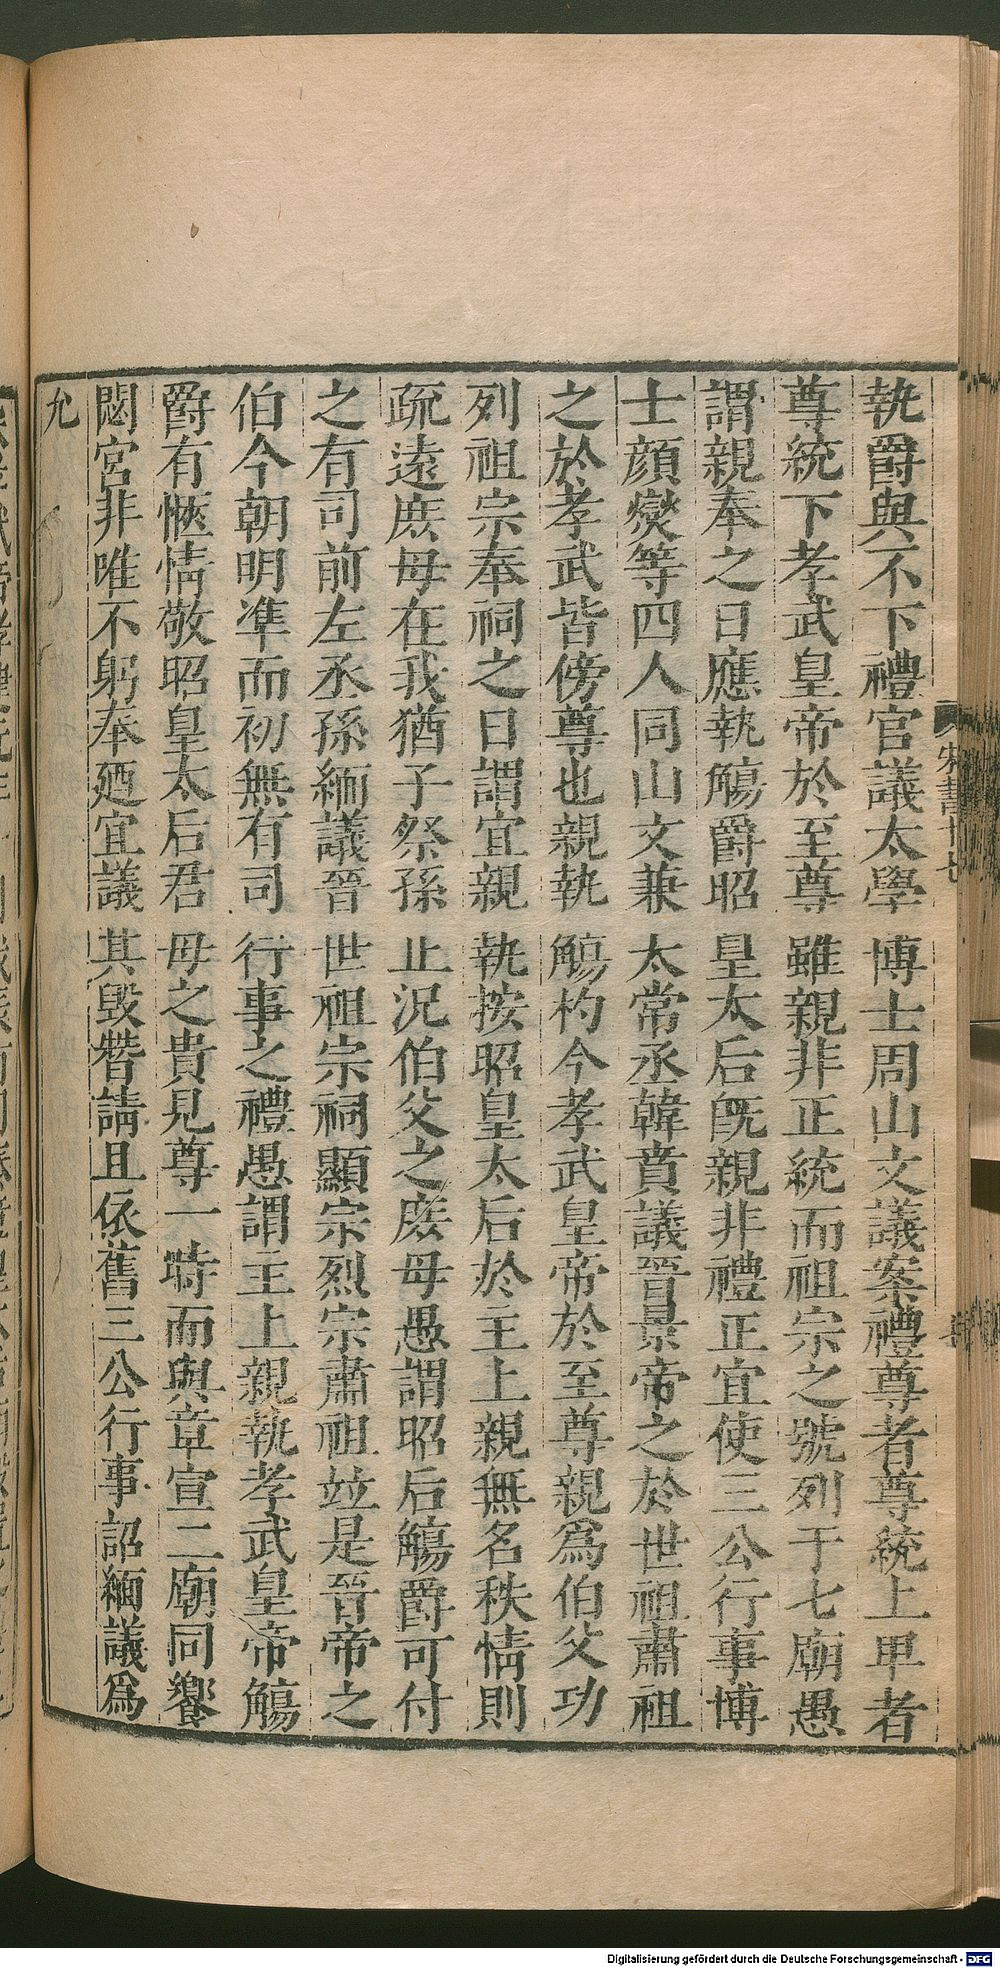 執爵與不下禮官議太學博士周山文議案禮尊者尊統上卑者
尊統下孝武皇帝於至尊雖親非正統而祖宗之號列于七廟愚
謂親奉之日應執觴爵昭皇太后旣親非禮正宜使三公行事博
士顔燮等四人同山文兼太常丞韓賁議晉景帝之於世祖肅祖
之於孝武皆傍尊也親執觴杓今孝武皇帝於至尊親爲伯父功
列祖宗奉祠之日謂宜親執按昭皇太后於主上親無名秩情則
疏遠庶母在我猶子祭孫止況伯父之庶母愚謂昭后觴爵可付
之有司前左丞孫緬議晉世祖宗祠顯宗烈宗肅祖竝是晉帝之
伯今朝明準而初無有司行事之禮愚謂主上親執孝武皇帝觴
爵有愜情敬昭皇太后君母之貴見尊一時而與章宣二廟同饗
閟宮非唯不躬奉廼宜議其毀替請且依舊三公行事詔緬議爲
允
宋書十七
Digitalisierung gefördert durch die Deutsche Forschungsgemeinschaft - DFG